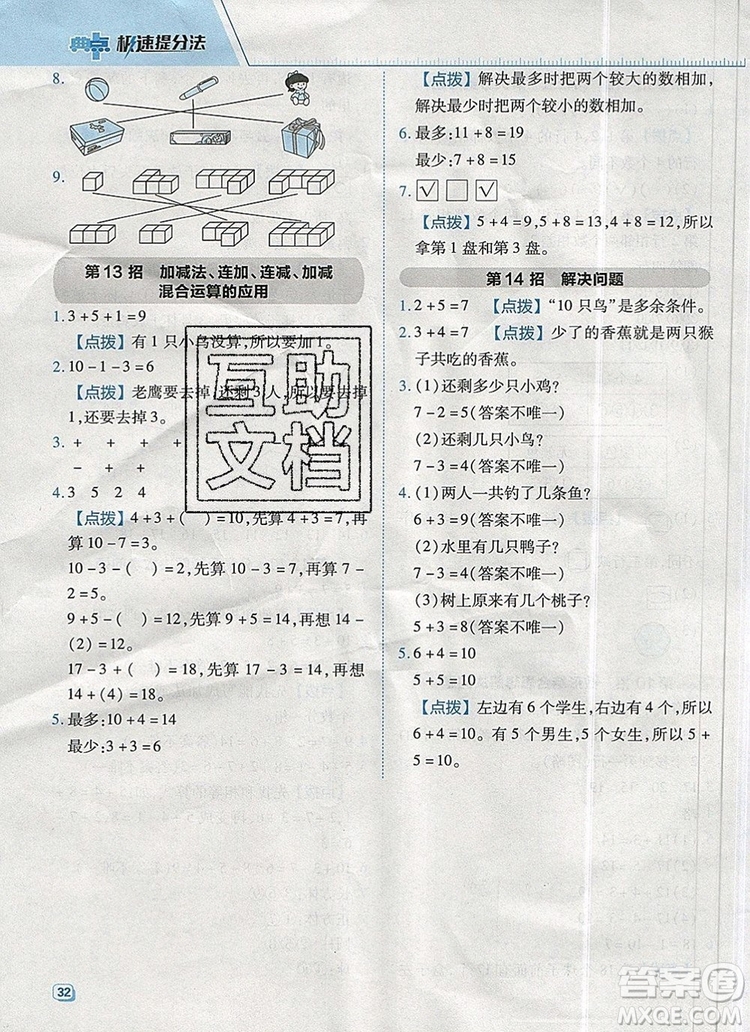 典点 极速提分法
8.
9.
第 13 招 加减法、连加、连减、加减
混合运算的应用
1. 3 + 5 + 1 = 9
【点拨】有 1 只小鸟没算，所以要加 1。
2. 10 - 1 - 3 = 6
【点拨】老鹰要去掉，还剩 3 人，所以去掉
1，还要去掉 3。
3. + + + +
- + - -
4. 3 5 2 4
【点拨】4 + 3 + ( ) = 10，先算 4 + 3 = 7，再
算 10 - 7 = 3。
10 - 3 - ( ) = 2，先算 10 - 3 = 7，再想 7 -
(5) = 2。
9 + 5 - ( ) = 12，先算 9 + 5 = 14，再想 14 -
(2) = 12。
17 - 3 + ( ) = 18，先算 17 - 3 = 14，再想
14 + (4) = 18。
5. 最多：10 + 4 = 14
最少：3 + 3 = 6
【点拨】解决最多时把两个较大的数相加，
解决最少时把两个较小的数相加。
6. 最多：11 + 8 = 19
最少：7 + 8 = 15
7. √ √
【点拨】5 + 4 = 9，5 + 8 = 13，4 + 8 = 12，所以
拿第 1 盘和第 3 盘。
第 14 招 解决问题
1. 2 + 5 = 7 【点拨】“10 只鸟”是多余条件。
2. 3 + 4 = 7 【点拨】少了的香蕉就是两只猴
子共吃的香蕉。
3. (1) 还剩多少只小鸡？
7 - 2 = 5（答案不唯一）
(2) 还剩几只小鸟？
7 - 3 = 4（答案不唯一）
4. (1) 两人一共钓了几条鱼？
6 + 3 = 9（答案不唯一）
(2) 水里有几只鸭子？
7 - 3 = 4（答案不唯一）
(3) 树上原来有几个桃子？
5 + 3 = 8（答案不唯一）
5. 6 + 4 = 10
5 + 5 = 10
【点拨】左边有 6 个学生，右边有 4 个学生，
6 + 4 = 10。有 5 个男生，5 个女生，所以 5 +
5 = 10。
互助
文档
32
答案圈
MXQE.COM